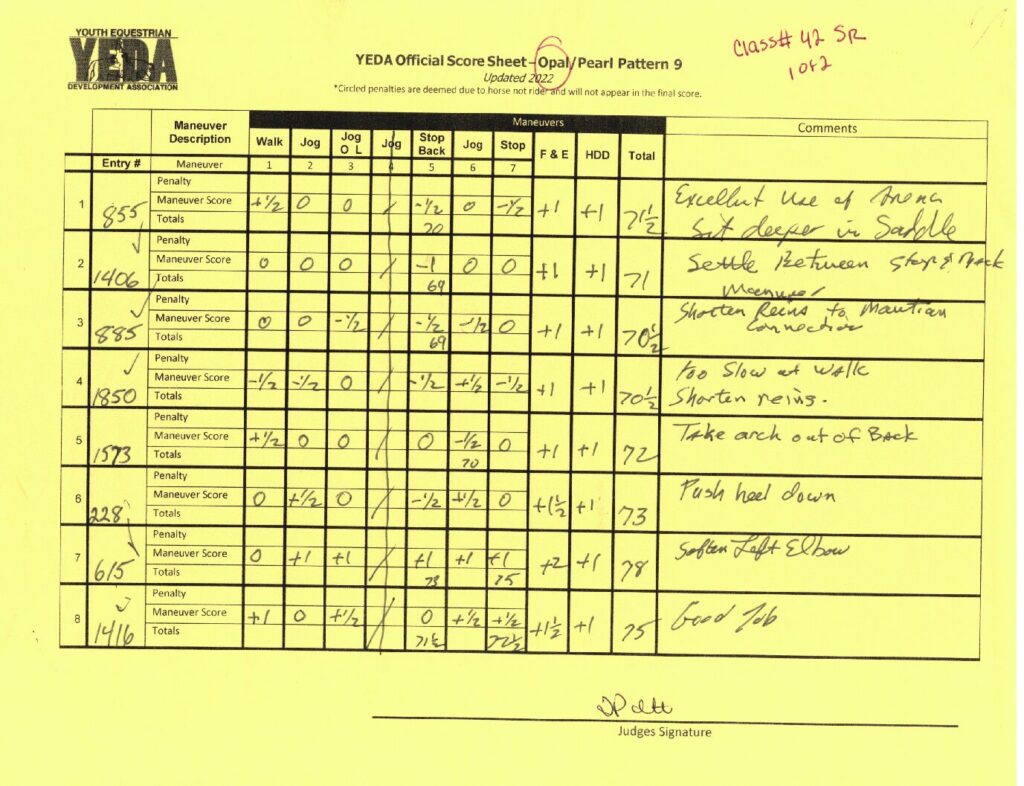 YOUTH EQUESTRIAN
YEDA
DEVELOPMENT ASSOCIATION
Class# 42 SR
1 of 2
YEDA Official Score Sheet – Opal/Pearl Pattern 9
Updated 2022
*Circled penalties are deemed due to horse not rider and will not appear in the final score.
Maneuvers
Maneuver Description Walk Jog Jog O L Jog Stop Back Jog Stop F & E HDD Total Comments
Entry # Maneuver 1 2 3 4 5 6 7
1 855 Penalty
Maneuver Score +1/2 0 0 / -1/2 0 -1/2 +1 +1 71 1/2 Excellent Use of Arena
Totals 70 Sit deeper in Saddle
2 1406 Penalty
Maneuver Score 0 0 0 / -1 0 0 +1 +1 71 Settle Between Stop & Back
Totals 69 Maneuver
3 885 Penalty Shorten Reins to Maintian
Maneuver Score 0 0 -1/2 / -1/2 -1/2 0 +1 +1 70 1/2 Connection
Totals 69
4 1850 Penalty too Slow at walk
Maneuver Score -1/2 -1/2 0 / -1/2 +1/2 -1/2 +1 +1 70 1/2 Shorten reins.
Totals
5 1573 Penalty
Maneuver Score +1/2 0 0 / 0 -1/2 0 +1 +1 72 Take arch out of Back
Totals 70
6 228 Penalty
Maneuver Score 0 +1/2 0 / -1/2 +1/2 0 +1 1/2 +1 73 Push heel down
Totals
7 615 Penalty
Maneuver Score 0 +1 +1 / +1 +1 +1 +2 +1 78 Soften Left Elbow
Totals 73 75
8 1416 Penalty
Maneuver Score +1 0 +1/2 / 0 +1/2 +1/2 +1 1/2 +1 75 Good Job
Totals 71 1/2 72 1/2
Judges Signature